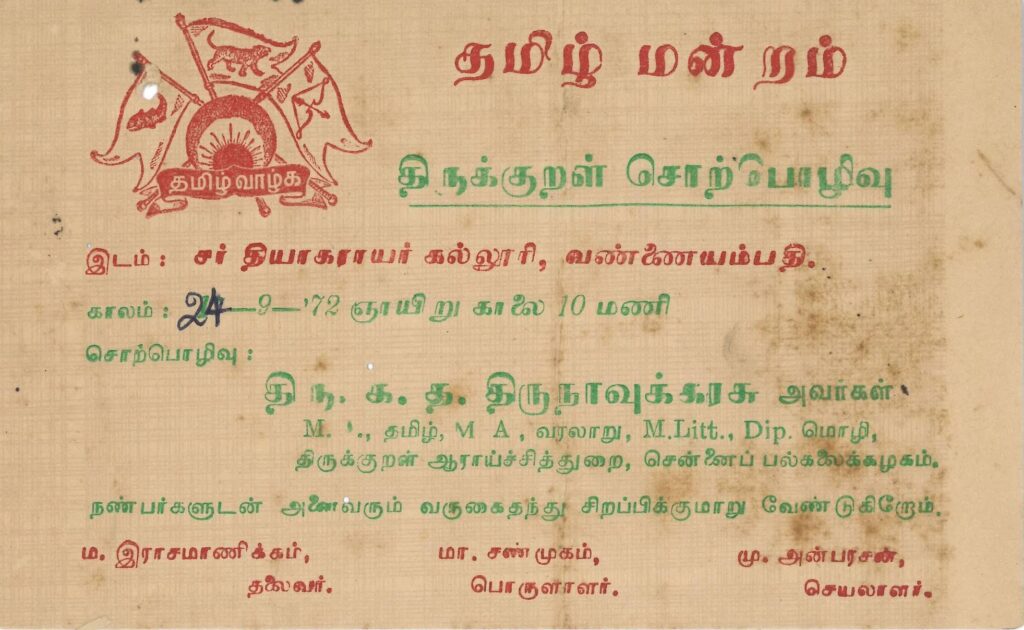 தமிழ் மன்றம்
தமிழ் வாழ்க
திருக்குறள் சொற்பொழிவு
இடம் : சர் தியாகராயர் கல்லூரி, வண்ணையம்பதி.
காலம் : 24—9—'72 ஞாயிறு காலை 10 மணி
சொற்பொழிவு :
திரு. க. த. திருநாவுக்கரசு அவர்கள்
M. ., தமிழ், M A , வரலாறு, M.Litt., Dip. மொழி,
திருக்குறள் ஆராய்ச்சித்துறை, சென்னைப் பல்கலைக்கழகம்.
நண்பர்களுடன் அனைவரும் வருகைதந்து சிறப்பிக்குமாறு வேண்டுகிறோம்.
ம. இராசமாணிக்கம், மா. சண்முகம், மு. அன்பரசன்,
தலைவர். பொருளாளர். செயலாளர்.